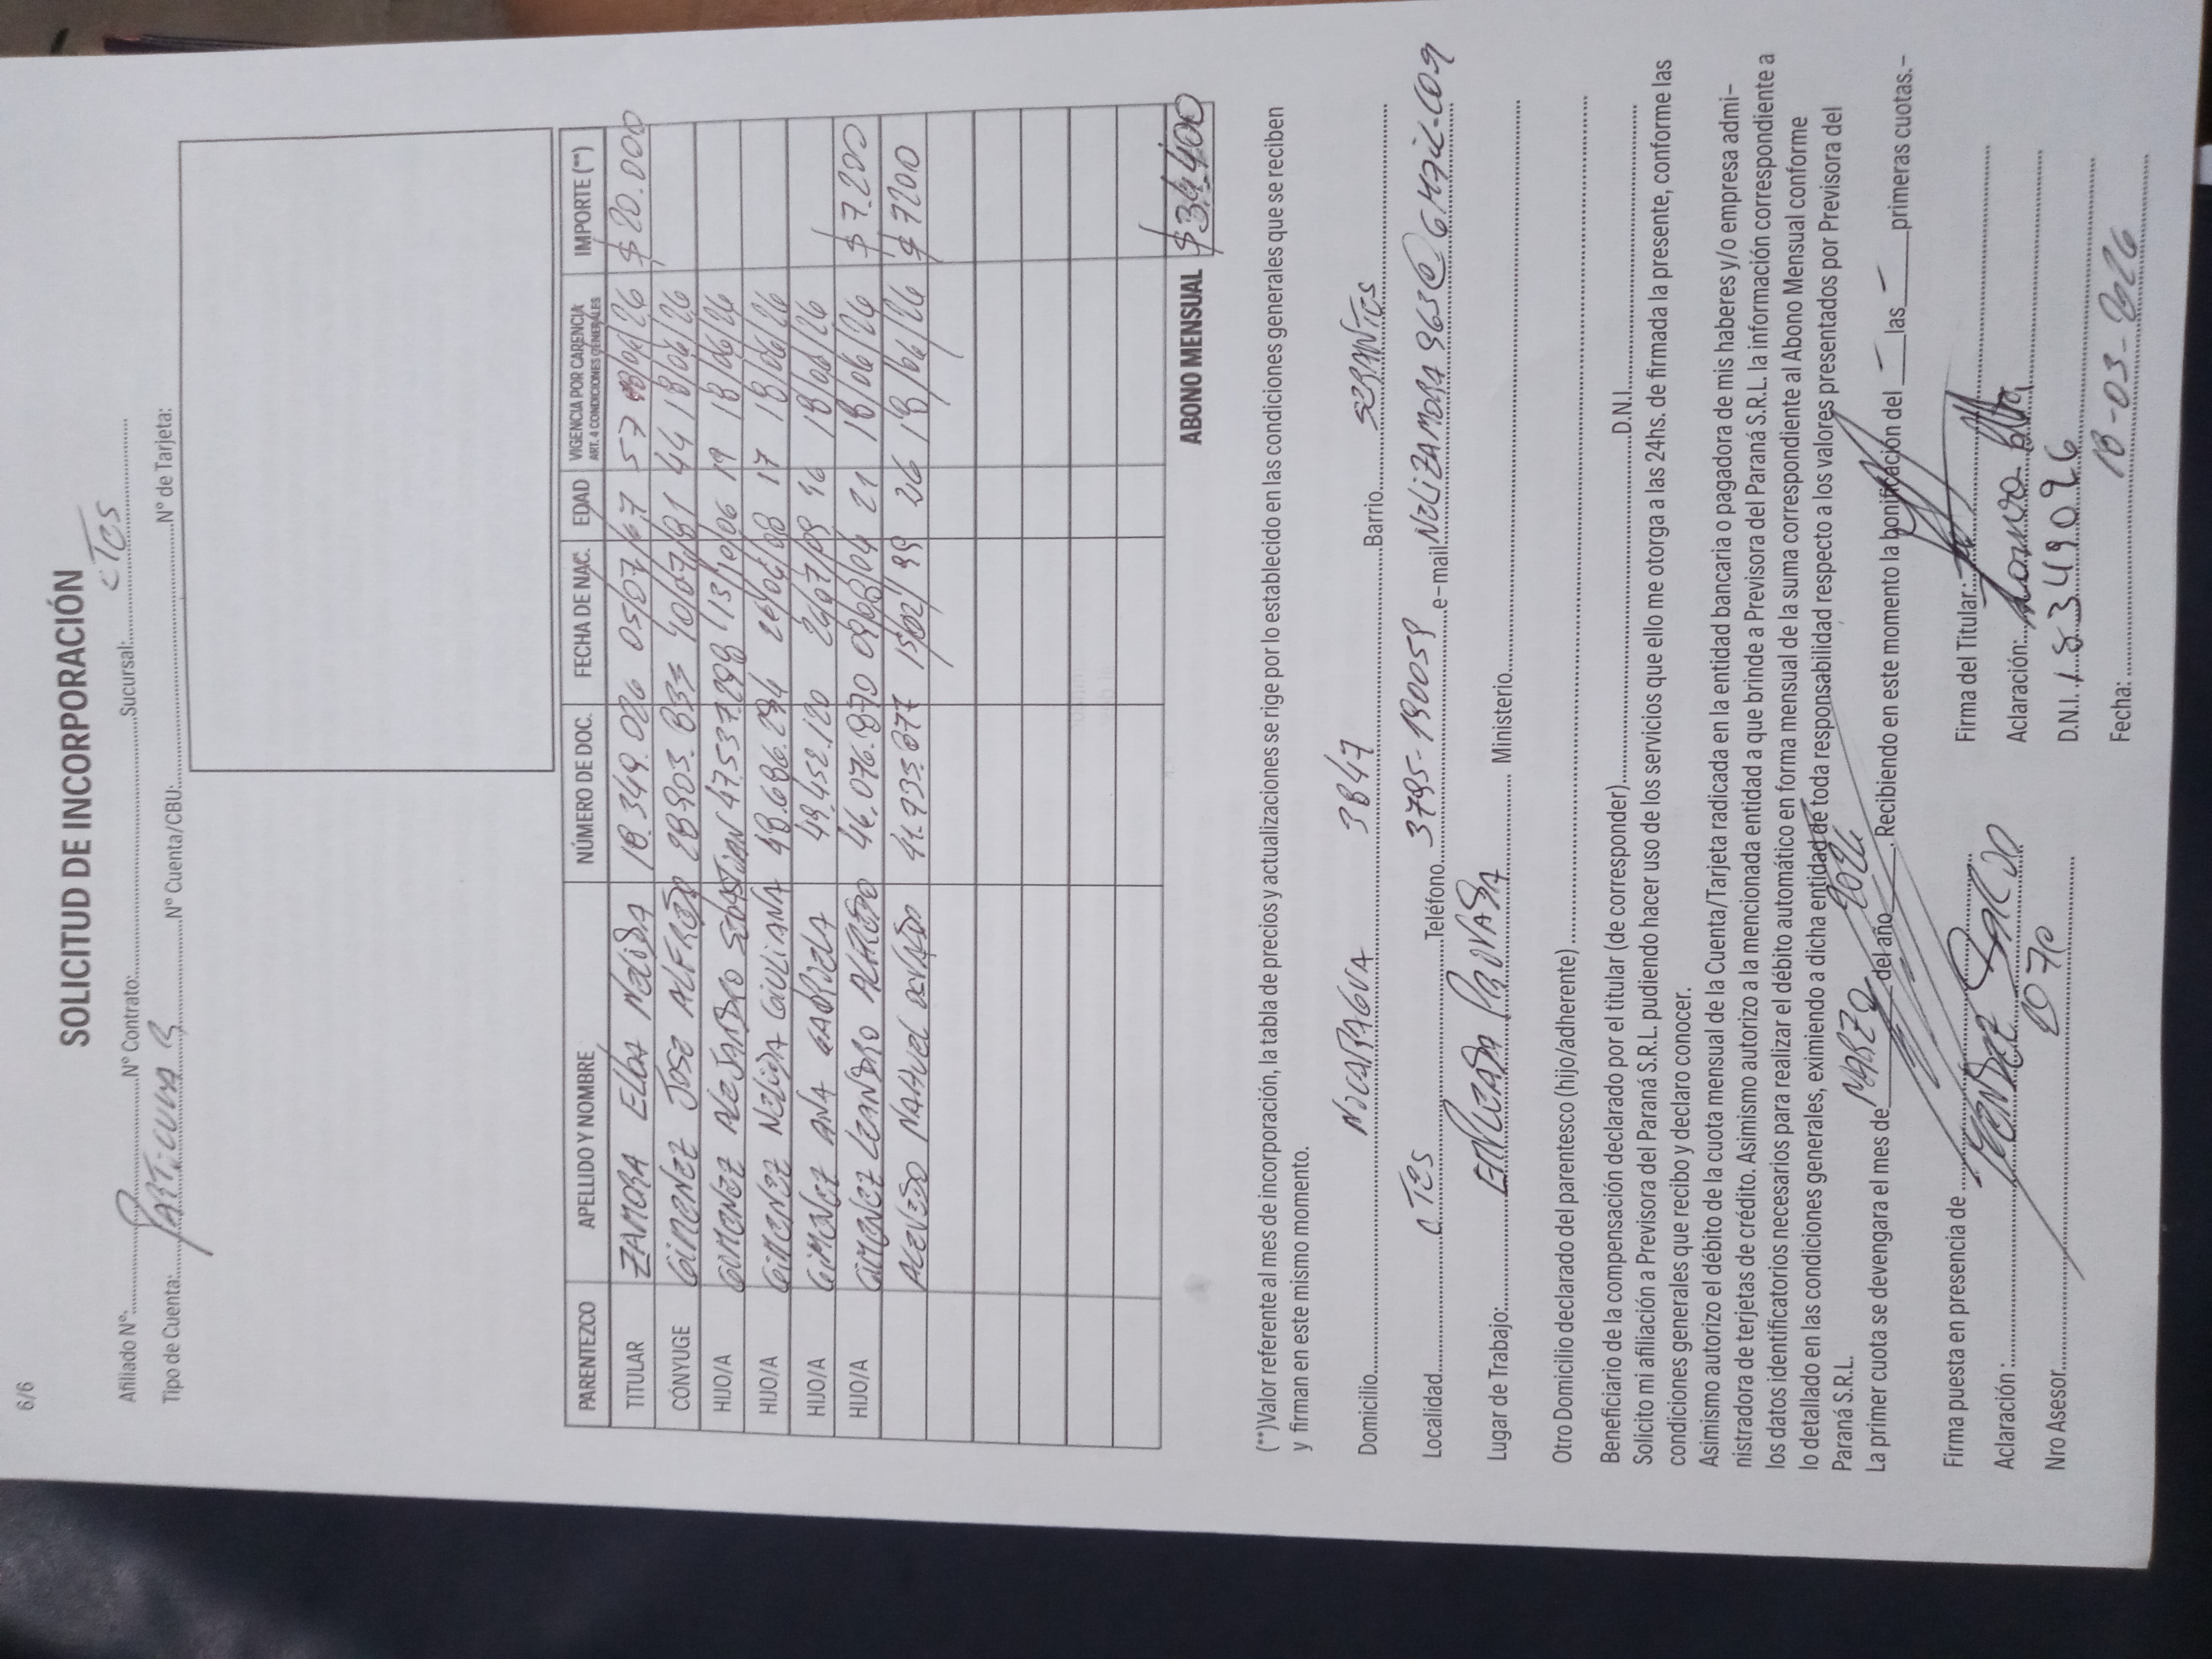 6/6
SOLICITUD DE INCORPORACIÓN
Afiliado Nº: Nº Contrato: Sucursal: CTES
Tipo de Cuenta: Nº Cuenta/CBU: Nº de Tarjeta:
PARENTEZCO APELLIDO Y NOMBRE NÚMERO DE DOC. FECHA DE NAC. EDAD VIGENCIA POR CARENCIA ART. 4 CONDICIONES GENERALES IMPORTE (**)
TITULAR ZAMORA Elba NeliDA 18.349.026 05/07/67 57 18/06/26 $ 20.000
CÓNYUGE GIMENEZ JOSE ALFREDO 28.903.833 10/07/81 44 18/06/26
HIJO/A GIMENEZ ALEJANDRO SEBASTIAN 47.537.298 13/10/06 19 18/06/26
HIJO/A GIMENEZ NELIDA GIULIANA 48.686.294 17 18/06/26
HIJO/A GIMENEZ ANA GABRIELA 49.452.120 24/07/09 16 18/06/26
HIJO/A GIMENEZ LEANDRO 46.076.870 21 18/06/26 $ 7.200
ACEVEDO NAHUEL 41.933.877 15/02/99 26 18/06/26 $ 7200
ABONO MENSUAL $34.400
(**)Valor referente al mes de incorporación, la tabla de precios y actualizaciones se rige por lo establecido en las condiciones generales que se reciben
y firman en este mismo momento.
Domicilio 3847 Barrio
Localidad CTES Teléfono 3795-190059 e-mail NELIZAMORA963@GMAIL.COM
Lugar de Trabajo: EMPLEADA PRIVADA Ministerio
Otro Domicilio declarado del parentesco (hijo/adherente)
Beneficiario de la compensación declarado por el titular (de corresponder) D.N.I.
Solicito mi afiliación a Previsora del Paraná S.R.L. pudiendo hacer uso de los servicios que ello me otorga a las 24hs. de firmada la presente, conforme las
condiciones generales que recibo y declaro conocer.
Asimismo autorizo el débito de la cuota mensual de la Cuenta/Tarjeta radicada en la entidad bancaria o pagadora de mis haberes y/o empresa admi-
nistradora de terjetas de crédito. Asimismo autorizo a la mencionada entidad a que brinde a Previsora del Paraná S.R.L. la información correspondiente a
los datos identificatorios necesarios para realizar el débito automático en forma mensual de la suma correspondiente al Abono Mensual conforme
lo detallado en las condiciones generales, eximiendo a dicha entidad de toda responsabilidad respecto a los valores presentados por Previsora del
Paraná S.R.L.
La primer cuota se devengara el mes de MARZO del año 2026. Recibiendo en este momento la bonificación del - las - primeras cuotas.-
Firma puesta en presencia de Firma del Titular:
Aclaración: Aclaración: Zamora Elba
Nro Asesor D.N.I. 18349026
Fecha: 18-03-2026